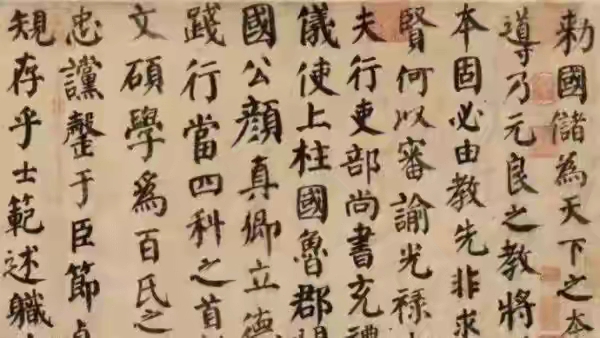 勅國儲為天下之本
導乃元良之教將
本固必由教先非求
賢何以審諭光祿
夫行吏部尚書充禮
儀使上柱國魯郡開
國公顏真卿立德
踐行當四科之首
文碩學為百氏之
忠讜罄于臣節貞
規存乎士範述職